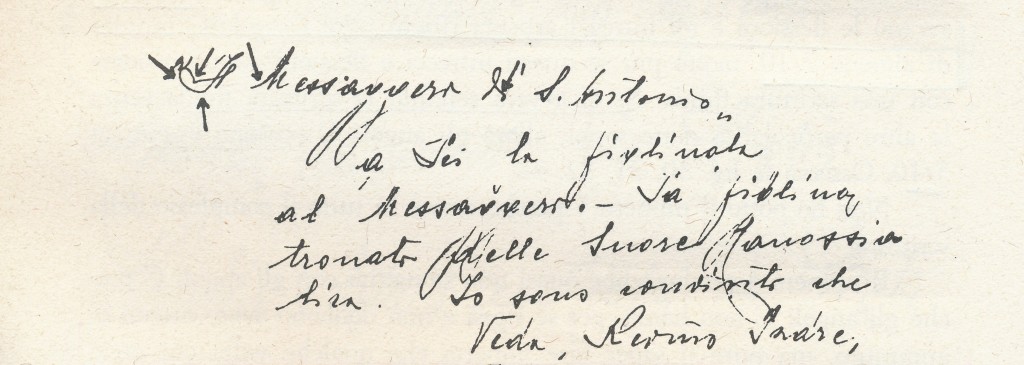 Il Messaggero di S. Antonio"
a Lei la figlinola
al Messaggero.- La figlina
tronato delle Suore Canossia
tira. Io sono condinto che
Veda, Revmo Padre,